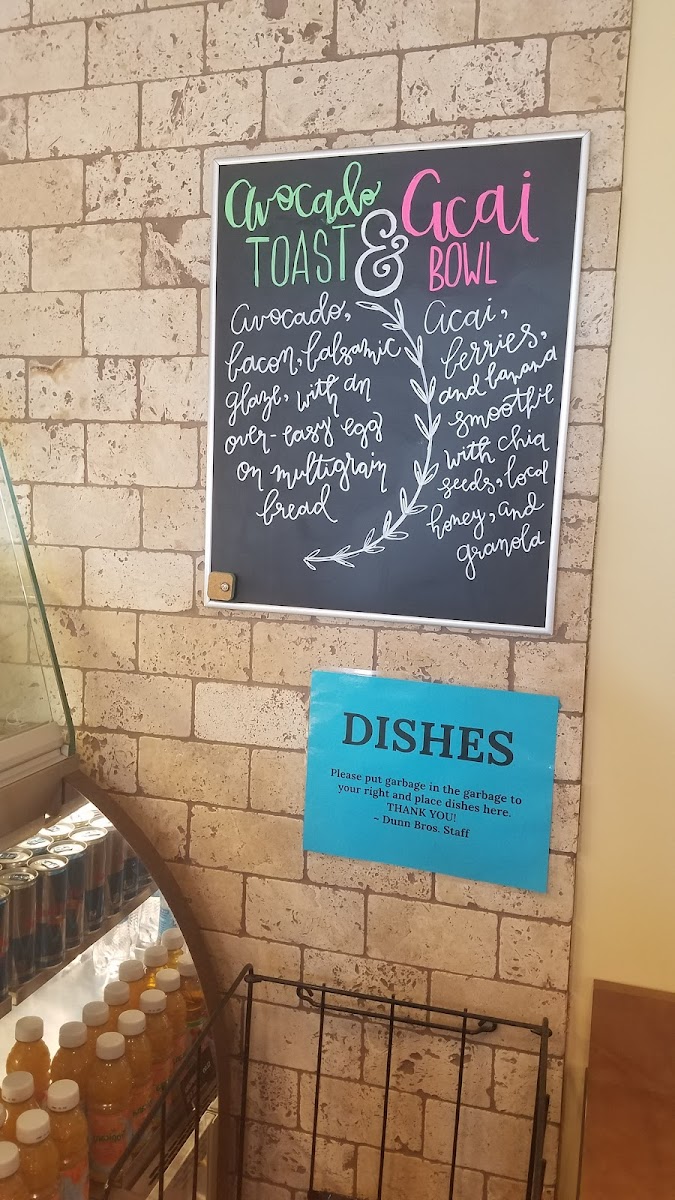 Avocado
TOAST
&
Acai
BOWL
Avocado,
bacon, balsamic
glaze, with an
over-easy egg
on multigrain
bread
Acai,
berries,
and banana
smoothie
with chia
seeds, local
honey, and
granola
DISHES
Please put garbage in the garbage to
your right and place dishes here.
THANK YOU!
~ Dunn Bros. Staff